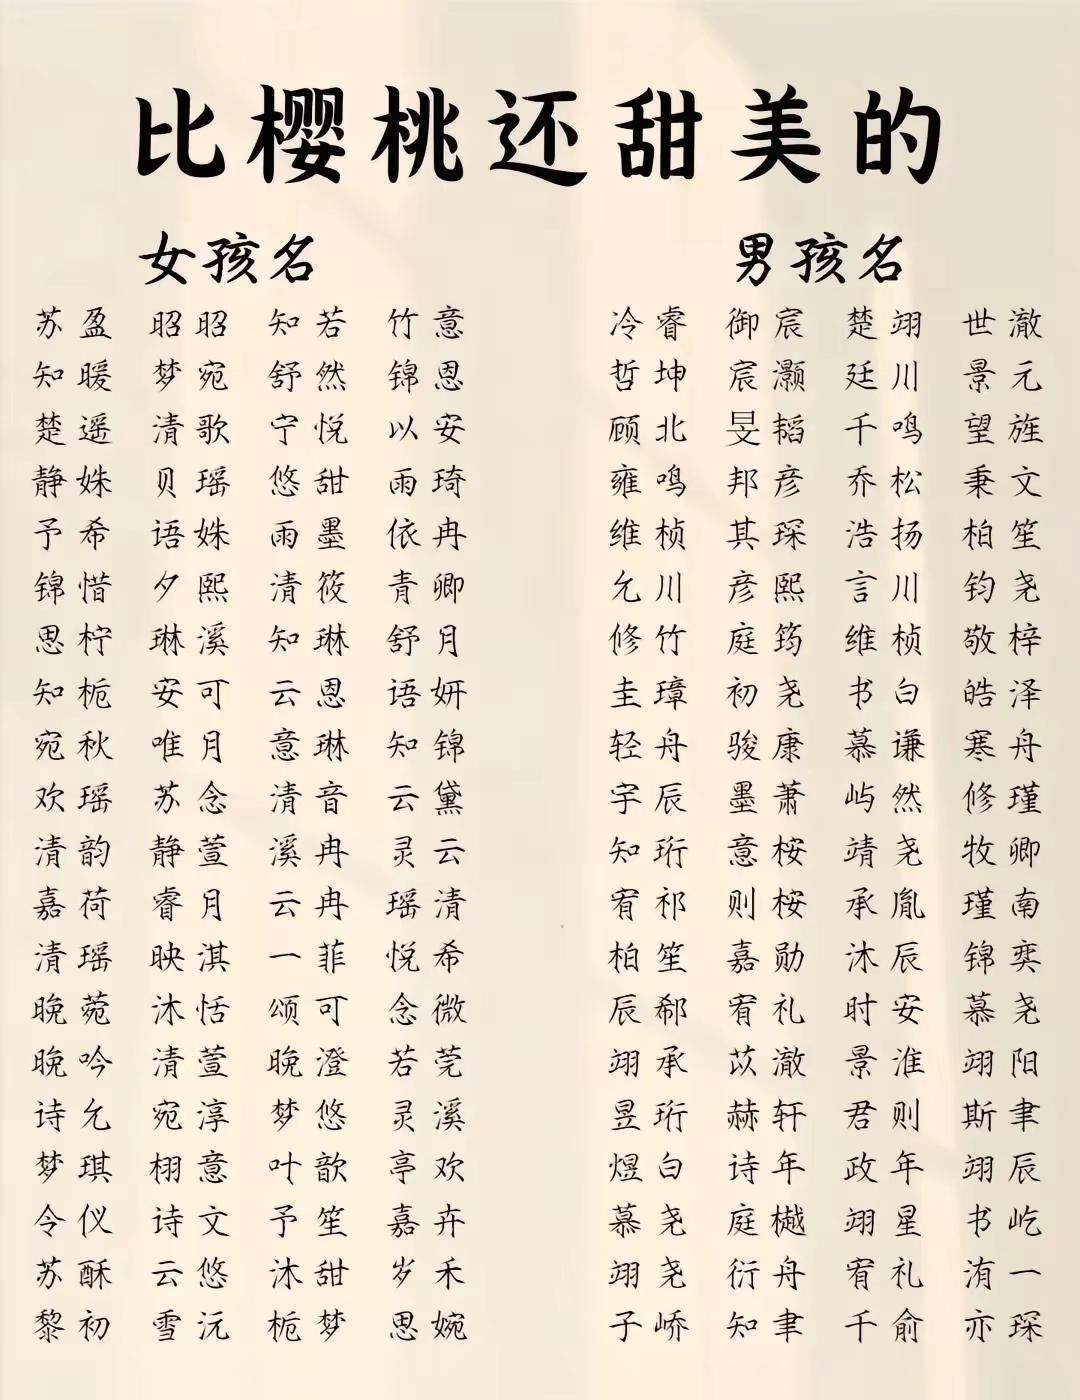 比樱桃还甜美的
女孩名 男孩名
苏盈 昭昭 知若 竹意 冷睿 御宸 楚翊 世澈
知暖 梦宛 舒然 锦恩 哲坤 宸灏 廷川 景元
楚遥 清歌 宁悦 以安 顾北 旻韬 千鸣 望旌
静姝 贝瑶 悠甜 雨琦 雍鸣 邦彦 乔松 秉文
予希 语姝 雨墨 依冉 维桢 其琛 浩扬 柏笙
锦惜 夕熙 清筱 青卿 允川 彦熙 言川 钧尧
思柠 琳溪 知琳 舒月 修竹 庭筠 维桢 敬梓
知栀 安可 云恩 语妍 圭璋 初尧 书白 皓泽
宛秋 唯月 意琳 知锦 轻舟 骏康 慕谦 寒舟
欢瑶 苏念 清音 云黛 宇辰 墨萧 屿然 修瑾
清韵 静萱 溪冉 灵云 知珩 意桉 靖尧 牧卿
嘉荷 睿月 云冉 瑶清 宥祁 则桉 承胤 瑾南
清瑶 映淇 一菲 悦希 柏笙 嘉勋 沐辰 锦奕
晚菀 沐恬 颂可 念微 辰郗 宥礼 时安 慕尧
晚吟 清萱 晚澄 若莞 翊承 苡澈 景淮 翊阳
诗允 宛淳 梦悠 灵溪 昱珩 赫轩 君则 斯聿
梦琪 栩意 叶歆 亭欢 煜白 诗年 政年 翊辰
令仪 诗文 予笙 嘉卉 慕尧 庭樾 翊星 书屹
苏酥 云悠 沐甜 岁禾 翊尧 衍舟 宥礼 洧一
黎初 雪沅 栀梦 思婉 子峤 知聿 千俞 亦琛